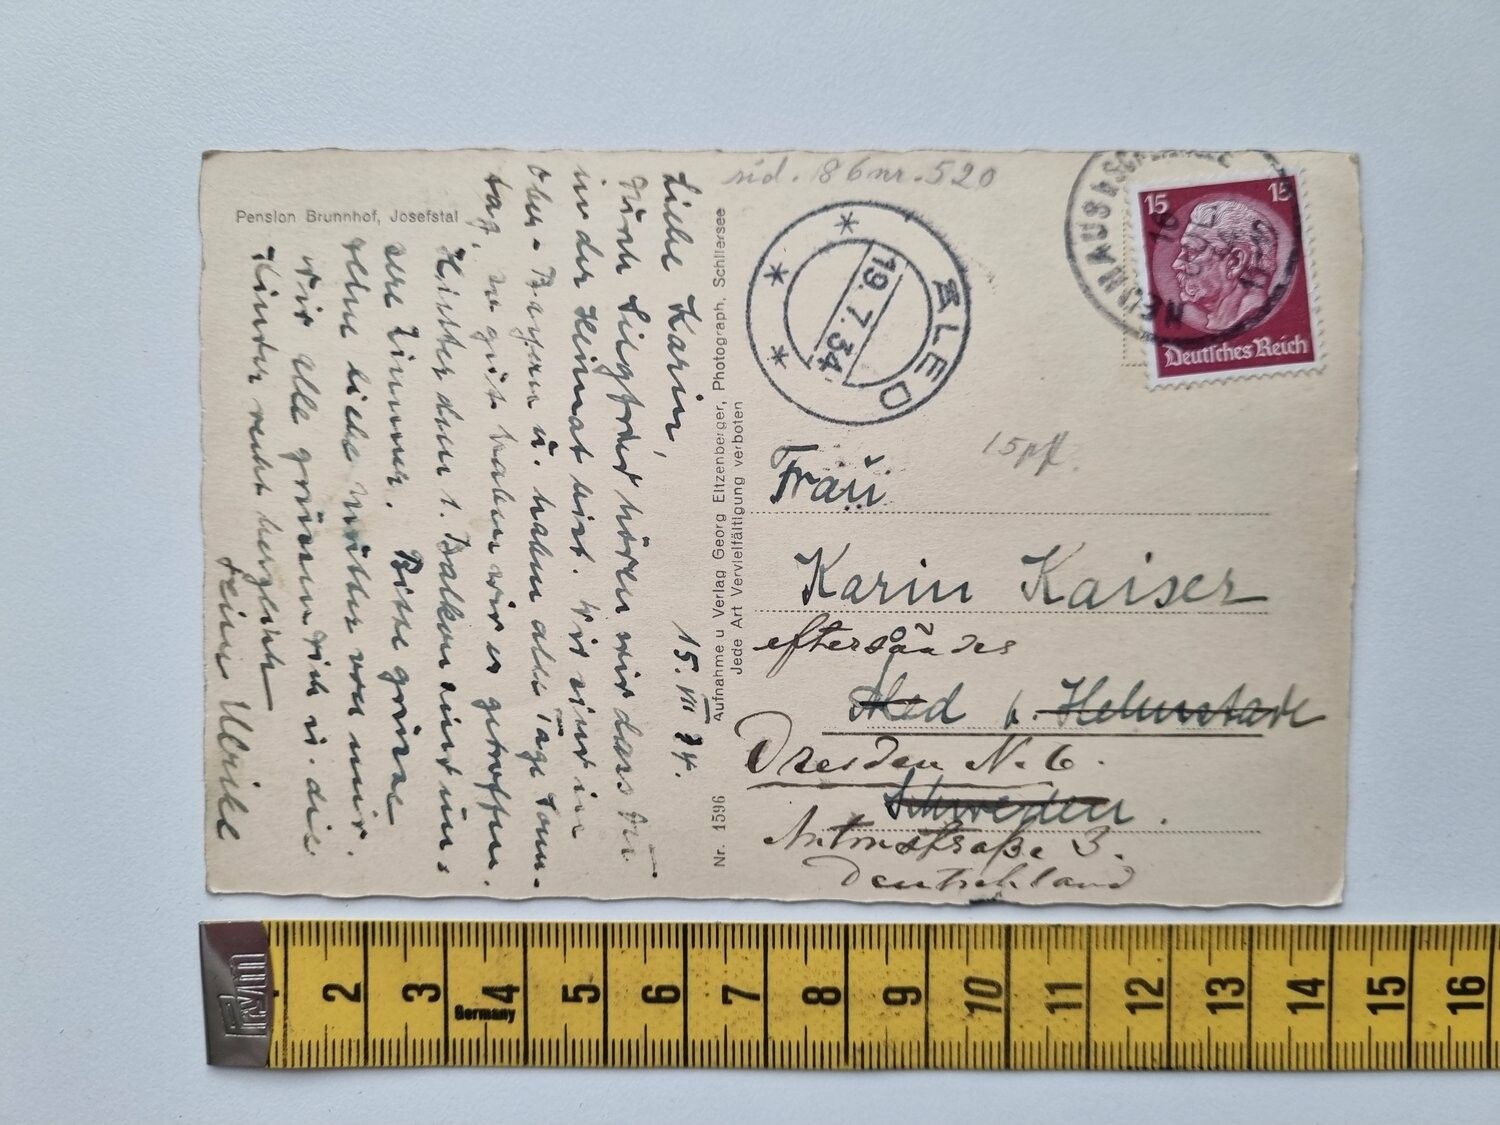 Pension Brunnhof, Josefstal
15. VII 34.
Liebe Karin,
durch Siegfried hören wir dass Du
in der Heimat bist. Wir sind in
Ober-Bayern u. haben alle Tage Sonn-
tag, so gut haben wir es getroffen.
Hinter dem 1. Balkon sind un-
sere Zimmer. Bitte grüsse
Deine liebe Mutter von mir.
Wir alle grüssen Dich u. die
Kinder recht herzlich
Deine Ulrike
Aufnahme u Verlag Georg Eltzenberger, Photograph, Schliersee
Jede Art Vervielfältigung verboten
Nr. 1596
sid. 86 nr. 520
LED
19.7.34
NEUHAUS b. SCHLIERSEE
15
15
Deutsches Reich
15 pf.
Frau
Karin Kaiser
eftersändes
Led b.
Dresden N. 6.
Schweden.
Antonstraße 3.
Deutschland
2 3 4 5 6 7 8 9 10 11 12 13 14 15 16
Germany